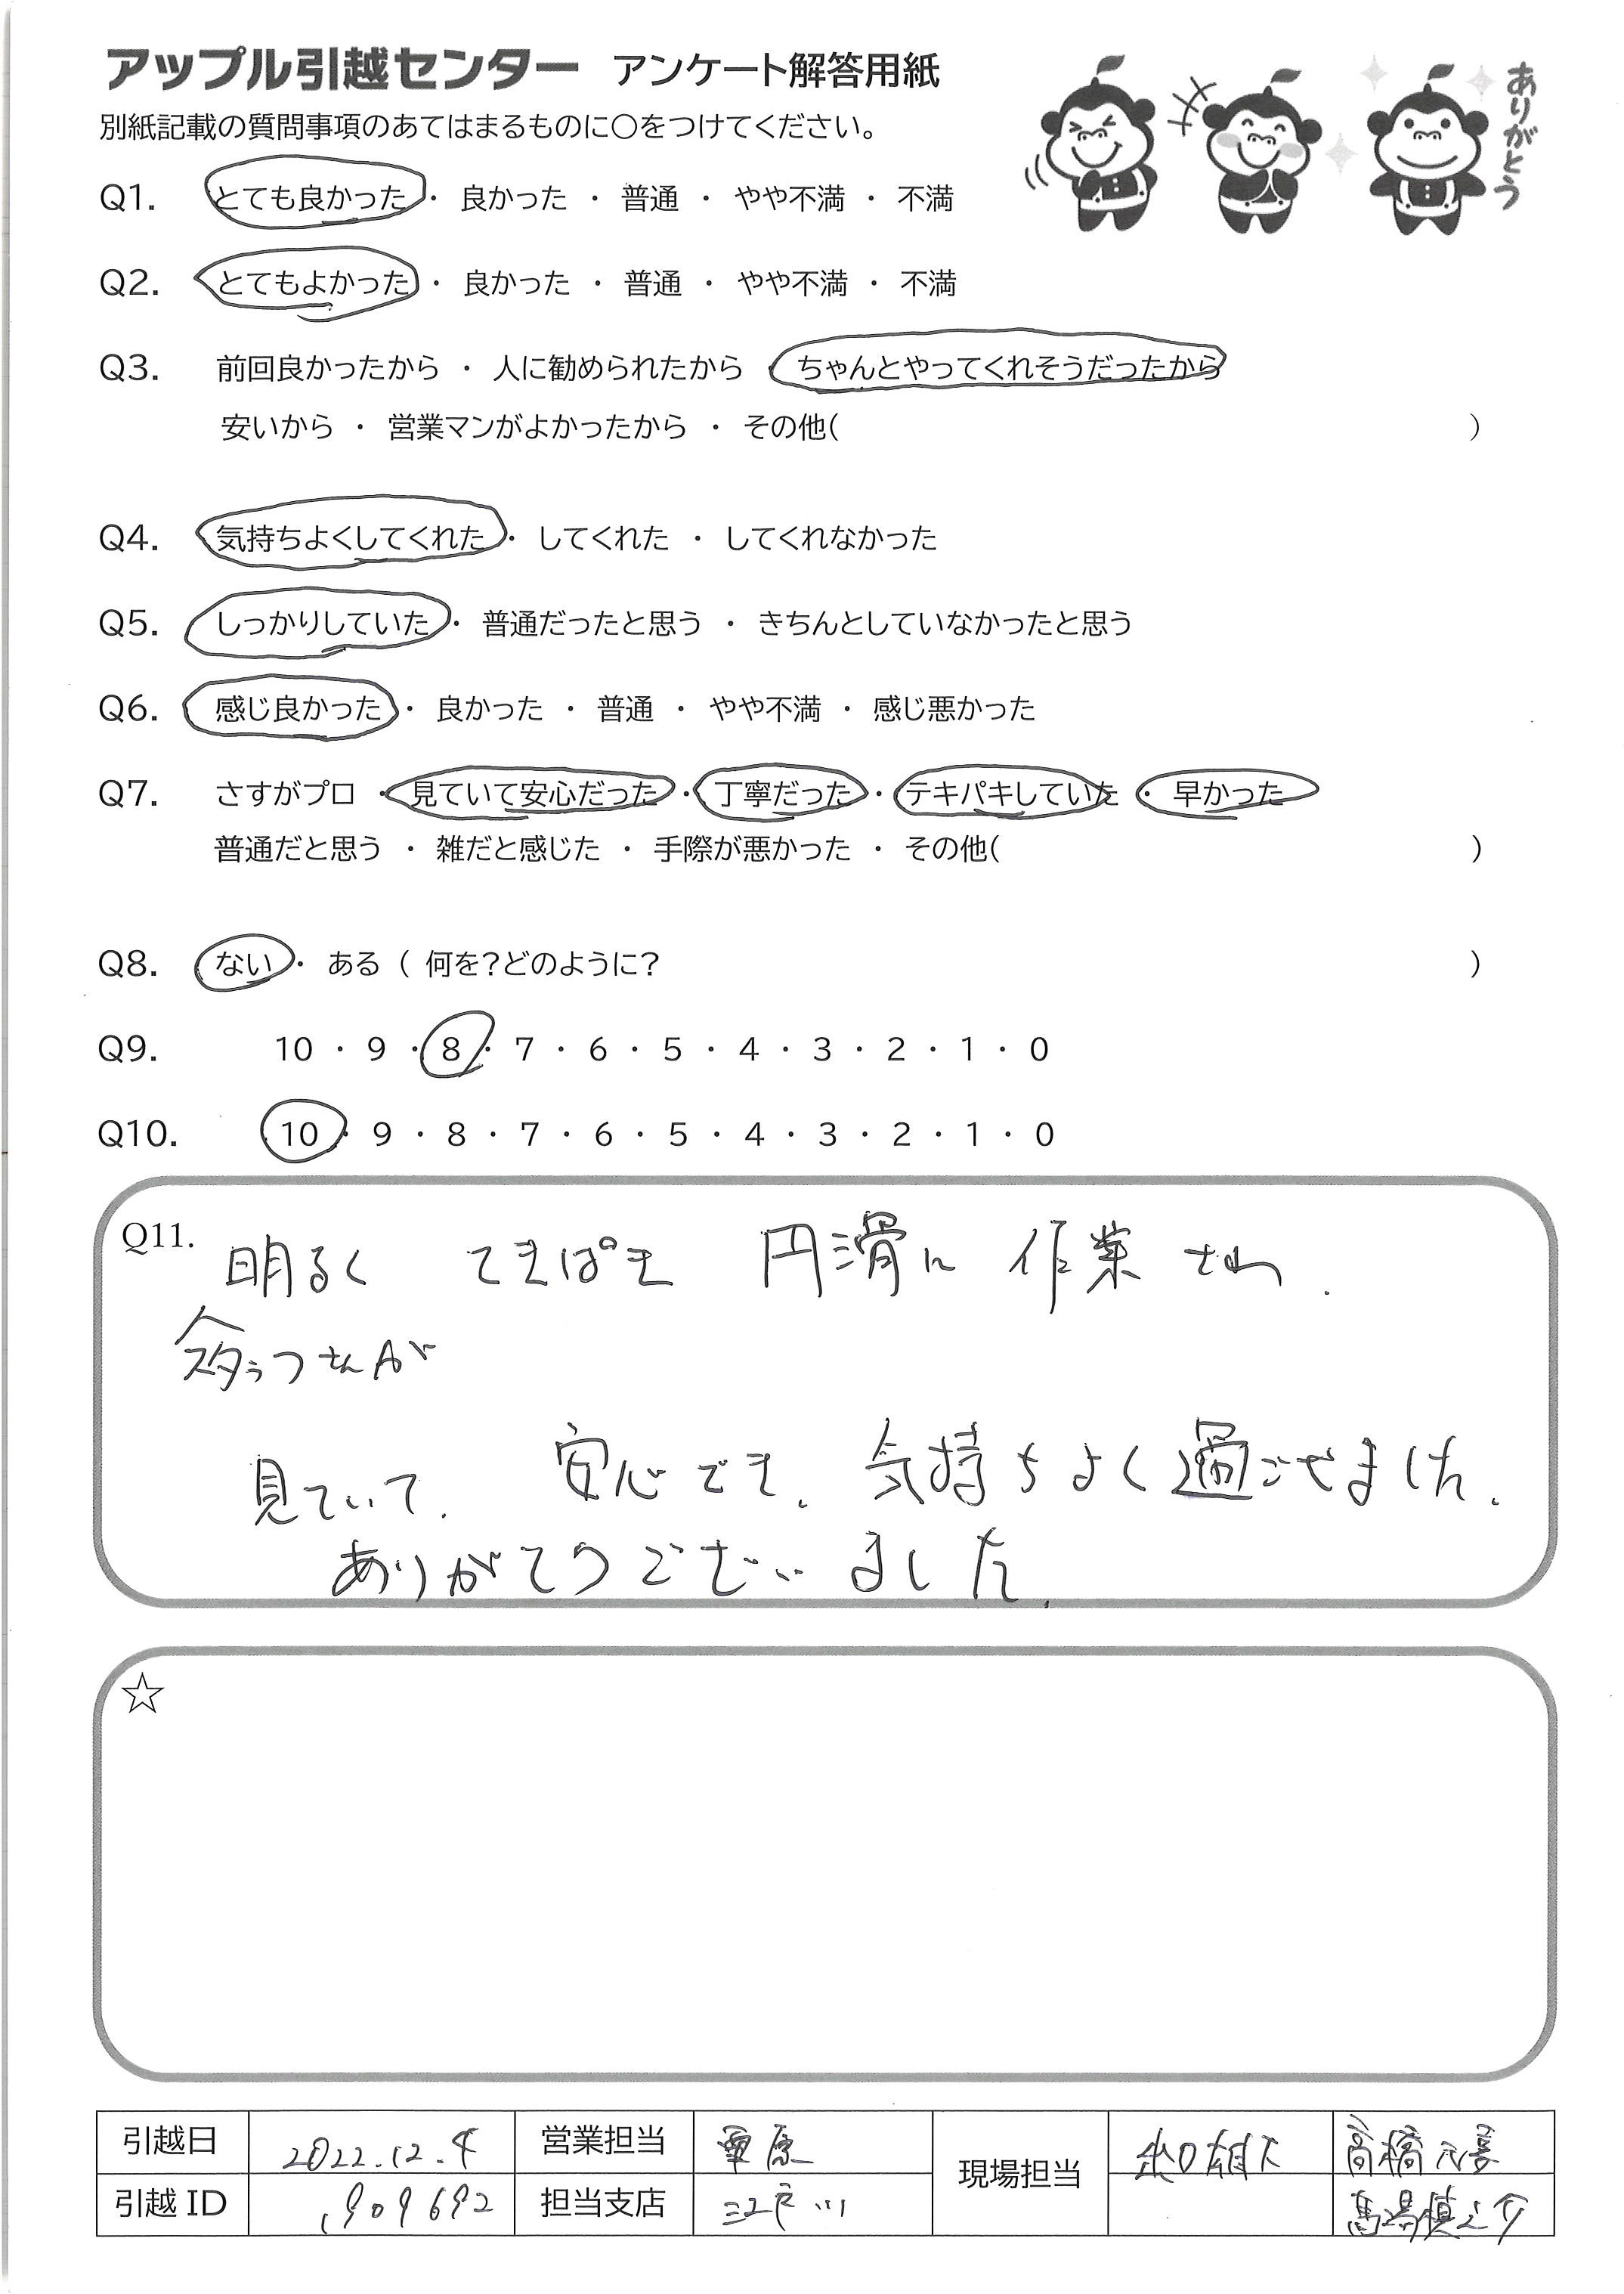 アップル引越センター アンケート解答用紙
ありがとう
別紙記載の質問事項のあてはまるものに○をつけてください。
Q1. とても良かった ・ 良かった ・ 普通 ・ やや不満 ・ 不満
Q2. とてもよかった ・ 良かった ・ 普通 ・ やや不満 ・ 不満
Q3. 前回良かったから ・ 人に勧められたから ・ ちゃんとやってくれそうだったから
安いから ・ 営業マンがよかったから ・ その他( )
Q4. 気持ちよくしてくれた ・ してくれた ・ してくれなかった
Q5. しっかりしていた ・ 普通だったと思う ・ きちんとしていなかったと思う
Q6. 感じ良かった ・ 良かった ・ 普通 ・ やや不満 ・ 感じ悪かった
Q7. さすがプロ ・ 見ていて安心だった ・ 丁寧だった ・ テキパキしていた ・ 早かった
普通だと思う ・ 雑だと感じた ・ 手際が悪かった ・ その他( )
Q8. ない ・ ある ( 何を?どのように? )
Q9. 10 ・ 9 ・ 8 ・ 7 ・ 6 ・ 5 ・ 4 ・ 3 ・ 2 ・ 1 ・ 0
Q10. 10 ・ 9 ・ 8 ・ 7 ・ 6 ・ 5 ・ 4 ・ 3 ・ 2 ・ 1 ・ 0
Q11. 明るく てきぱき 円滑に 作業 され.
スタッフさんが
見ていて. 安心でき. 気持ちよく過ごせました.
ありがとうございました.
☆
引越日 2022.12.4 営業担当 栗原 現場担当 高橋
引越 ID 1909692 担当支店 江戸川 馬場慎之介